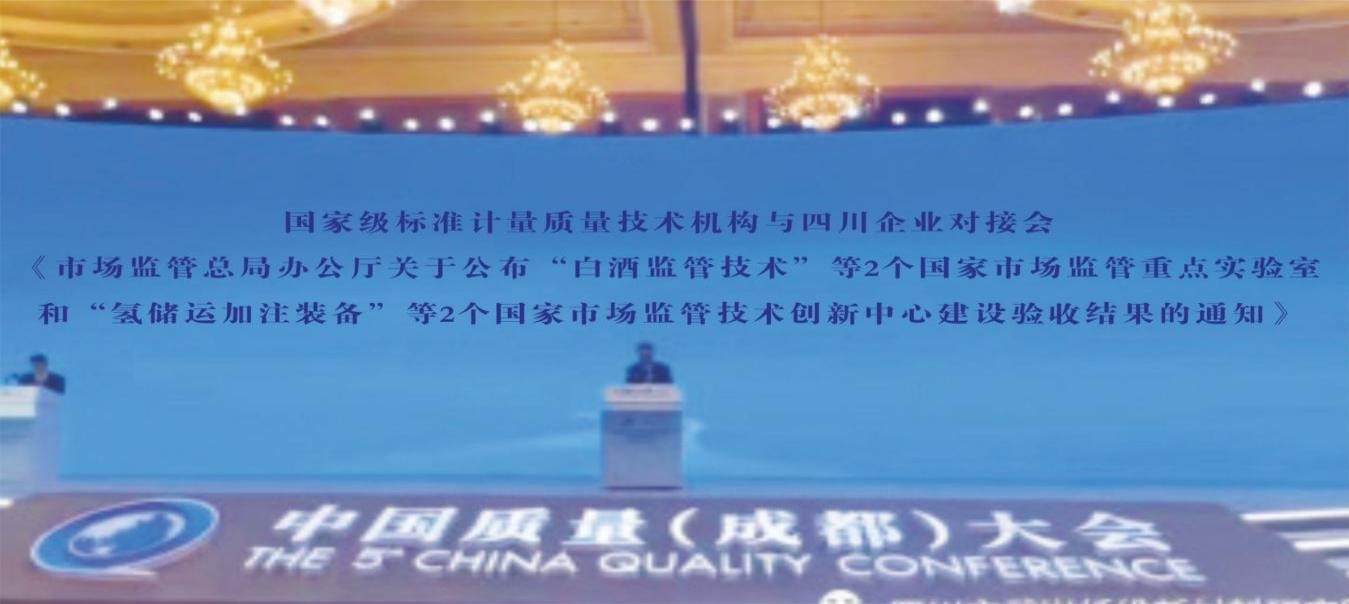 国家级标准计量质量技术机构与四川企业对接会
《市场监管总局办公厅关于公布“白酒监管技术”等2个国家市场监管重点实验室
和“氢储运加注装备”等2个国家市场监管技术创新中心建设验收结果的通知》
中国质量(成都)大会
THE 5th CHINA QUALITY CONFERENCE